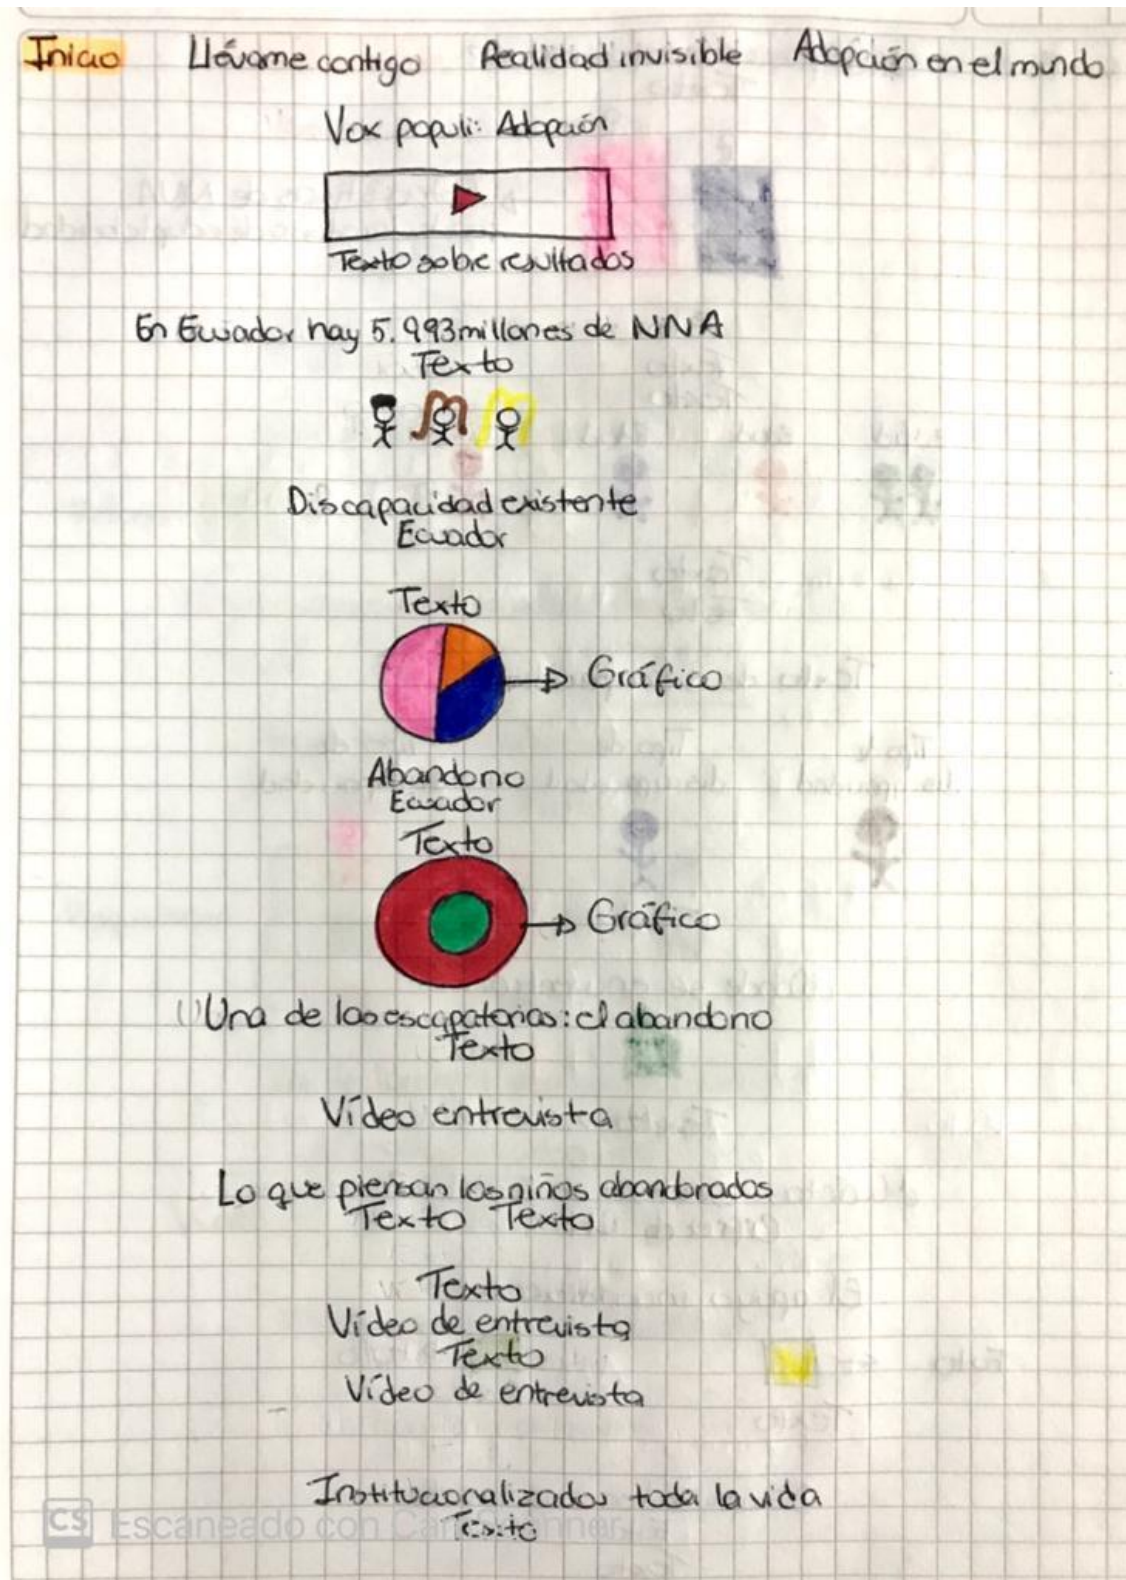 Inicio Llévame contigo Realidad invisible Adopción en el mundo
Vox populi: Adopción
Texto sobre resultados
En Ecuador hay 5.993 millones de NNA
Texto
Discapacidad existente
Ecuador
Texto
Gráfico
Abandono
Ecuador
Texto
Gráfico
Una de las escapatorias: el abandono
Texto
Vídeo entrevista
Lo que piensan los niños abandonados
Texto Texto
Texto
Vídeo de entrevista
Texto
Vídeo de entrevista
Institucionalizados toda la vida
Texto
CS Escaneado con CamScanner